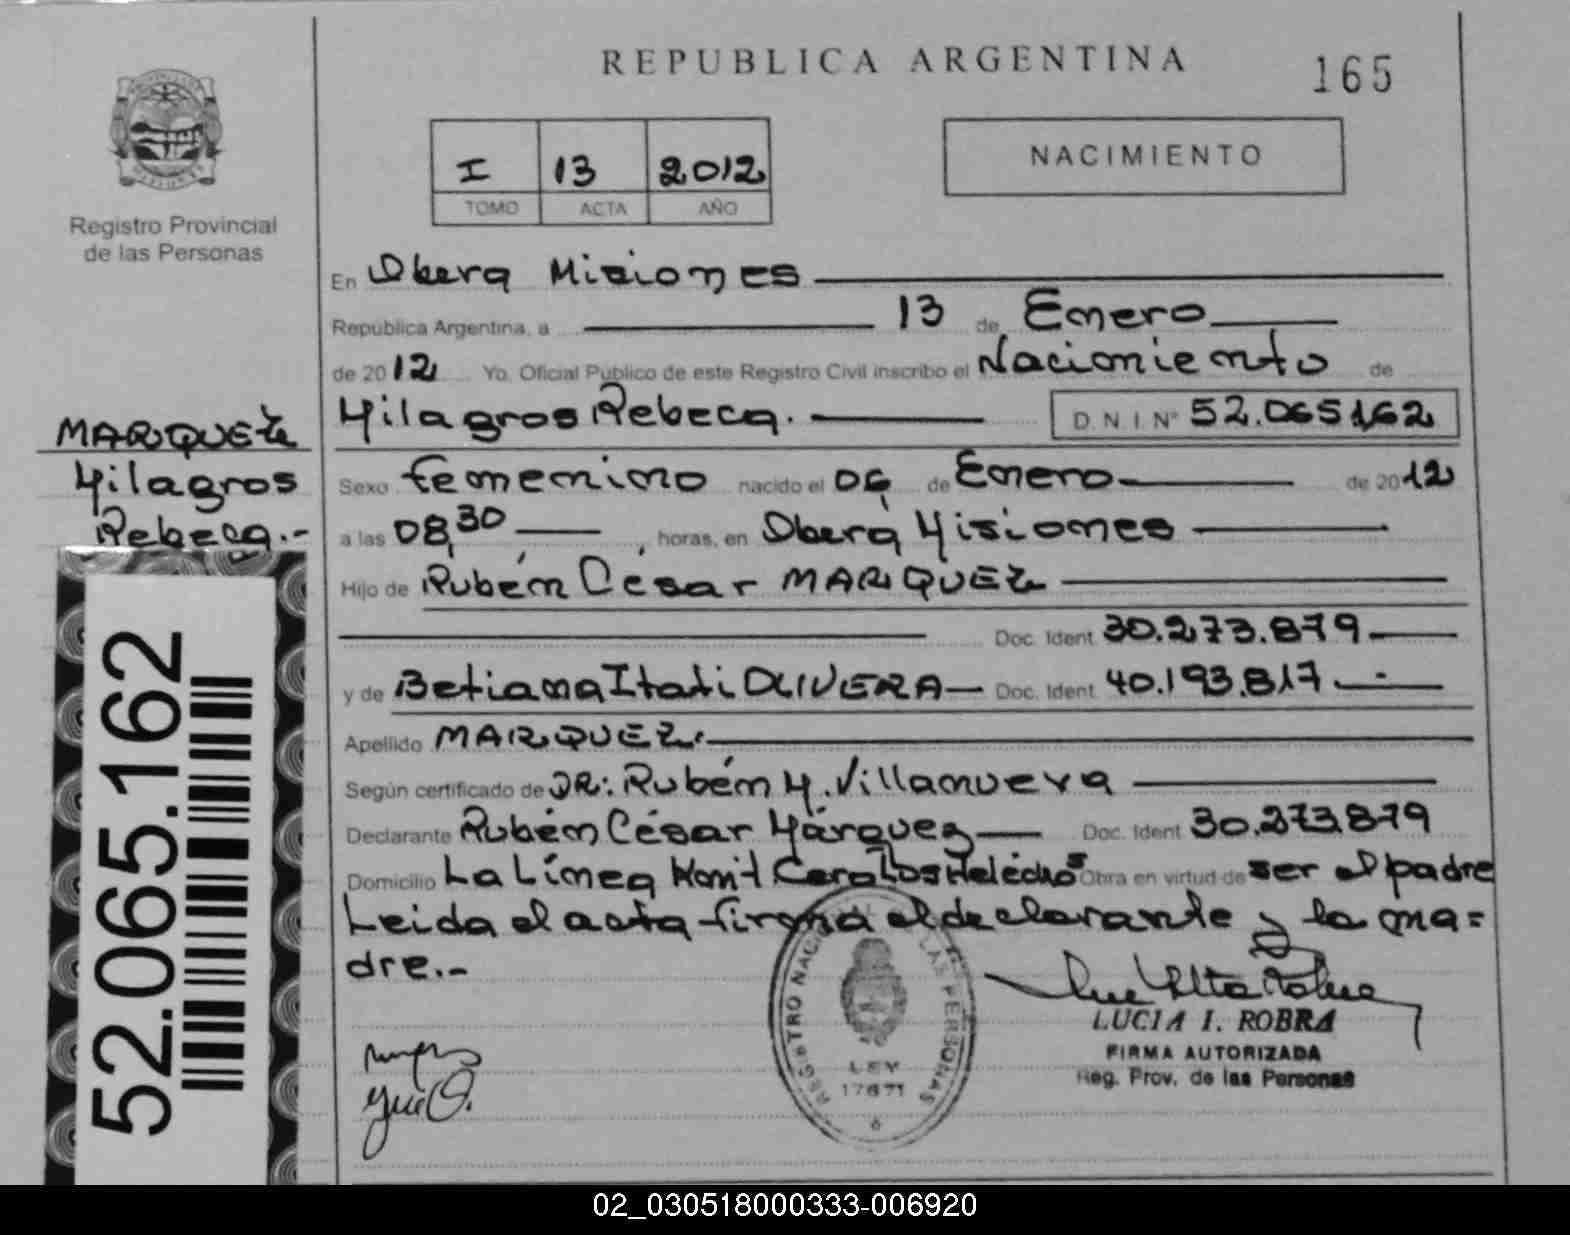 REPUBLICA ARGENTINA
165
I 13 2012
TOMO ACTA AÑO
NACIMIENTO
Registro Provincial
de las Personas
En Oberá Misiones
República Argentina, a 13 de Enero
de 2012 Yo, Oficial Público de este Registro Civil inscribo el Nacimiento de
Milagros Rebeca. D. N. I. Nº 52.065.162
MARQUEZ
Milagros
Rebeca.-
Sexo femenino nacido el 06 de Enero de 2012
a las 08,30, horas, en Oberá Misiones
Hijo de Rubén César MARQUEZ
Doc. Ident. 30.273.879
y de Betiana Itati OLIVERA Doc. Ident. 40.193.817.
Apellido MARQUEZ.
Según certificado de DR: Rubén M. Villanueva
Declarante Rubén César Márquez Doc. Ident. 30.273.879
Domicilio La Línea Los Helechos Obra en virtud de ser el padre
Leida el acta firma el declarante y la ma=
dre.-
52.065.162
REGISTRO NACIONAL DE LAS PERSONAS
LEY
17671
LUCIA I. ROBRA
FIRMA AUTORIZADA
Reg. Prov. de las Personas
02_030518000333-006920